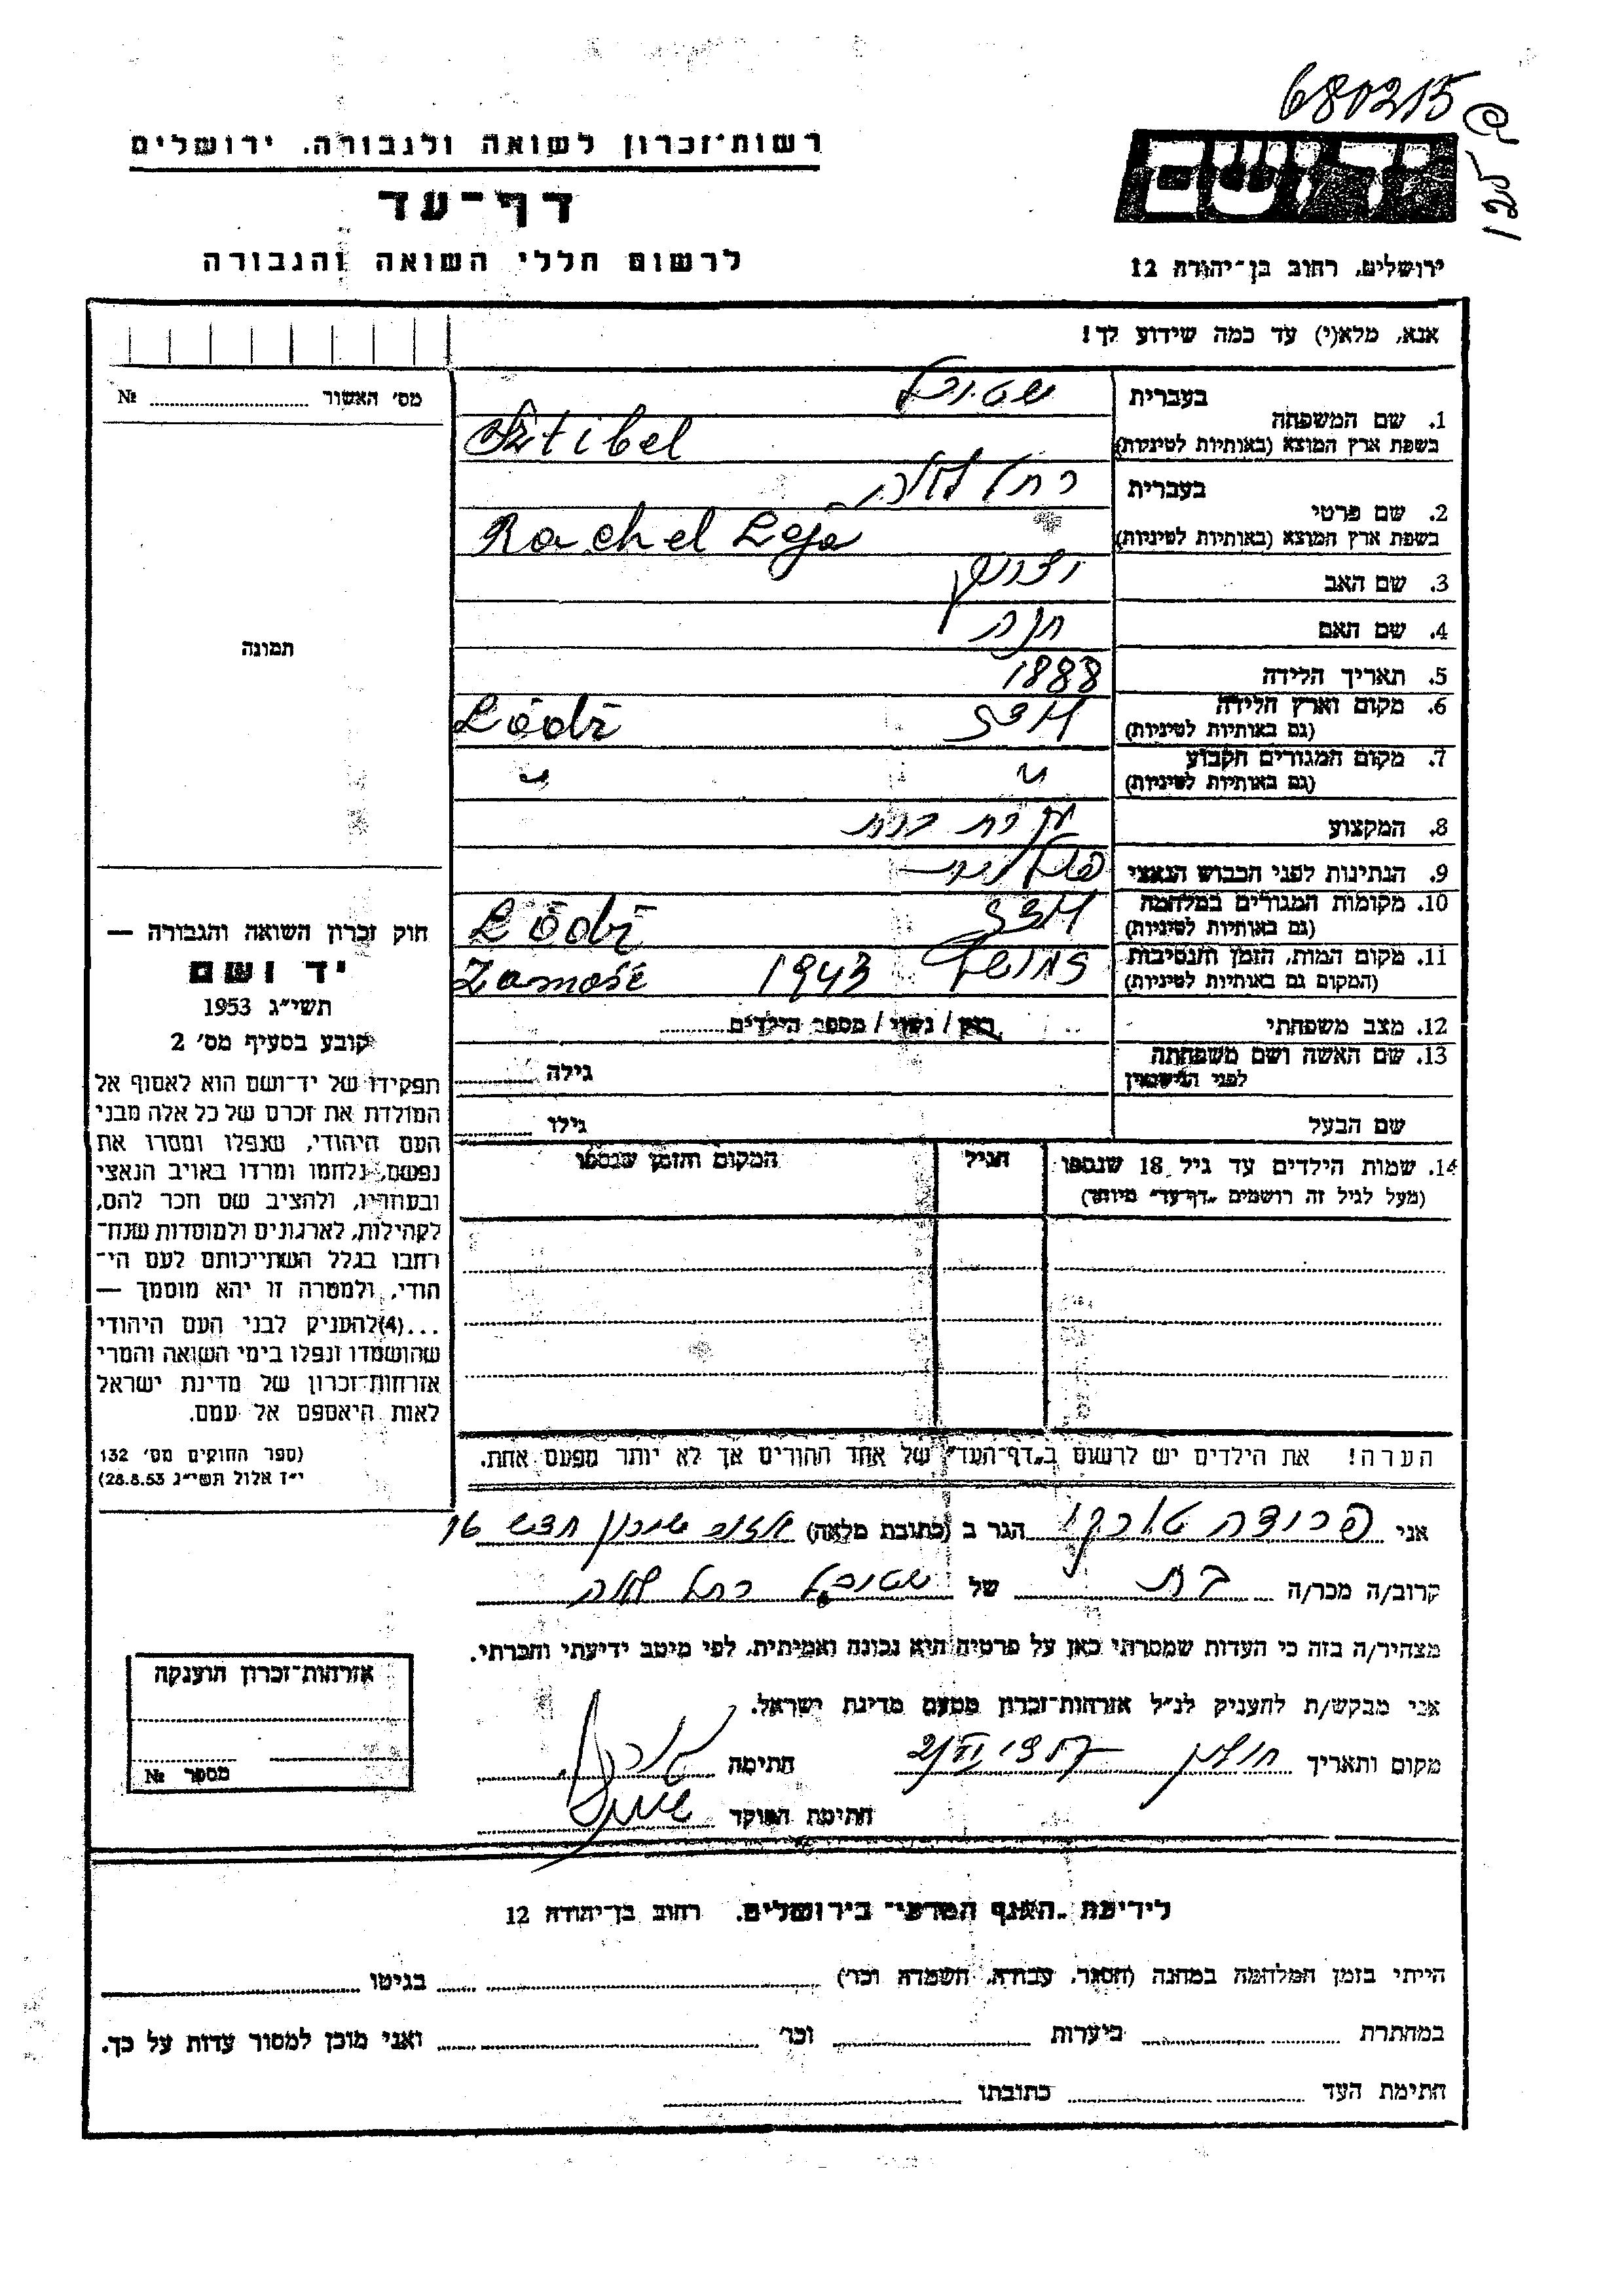 680215
125 ק
רשות־זכרון לשואה ולגבורה. ירושלים
דף־עד
לרשום חללי השואה והגבורה
יד ושם
ירושלים, רחוב בן־יהודה 12
אנא, מלא(י) עד כמה שידוע לך!
מס׳ האשור № 
1. שם המשפחה
בעברית שטיבל
בשפת ארץ המוצא (באותיות לטיניות) Sztibel
2. שם פרטי
בעברית רחל לאה
בשפת ארץ המוצא (באותיות לטיניות) Rachel Leja
3. שם האב
4. שם האם חנה
5. תאריך הלידה 1888
6. מקום וארץ הלידה (גם באותיות לטיניות) לודז Łódź
7. מקום המגורים הקבוע (גם באותיות לטיניות) " "
8. המקצוע עקרת בית
9. הנתינות לפני הכבוש הנאצי פולנית
10. מקומות המגורים במלחמה (גם באותיות לטיניות) לודז Łódź
11. מקום המות, הזמן והנסיבות (המקום גם באותיות לטיניות) זמושץ 1943 Zamość
12. מצב משפחתי רווק / נשוי / מספר הילדים
13. שם האשה ושם משפחתה לפני הנישואין גילה
שם הבעל גילו
14. שמות הילדים עד גיל 18 שנספו (מעל לגיל זה רושמים „דף־עד” מיוחד) הגיל המקום והזמן שנספו
הערה! את הילדים יש לרשום ב„דף־העד” של אחד ההורים אך לא יותר מפעם אחת.
תמונה
חוק זכרון השואה והגבורה —
יד ושם
תשי״ג 1953
קובע בסעיף מס׳ 2
תפקידו של יד־ושם הוא לאסוף אל
המולדת את זכרם של כל אלה מבני
העם היהודי, שנפלו ומסרו את
נפשם, נלחמו ומרדו באויב הנאצי
ובעוזריו, ולהציב שם וזכר להם,
לקהילות, לארגונים ולמוסדות שנח־
רבו בגלל השתייכותם לעם הי־
הודי, ולמטרה זו יהא מוסמך —
...(4) להעניק לבני העם היהודי
שהושמדו ונפלו בימי השואה והמרי
אזרחות־זכרון של מדינת ישראל
לאות היאספם אל עמם.
(ספר החוקים מס׳ 132
י״ז אלול תשי״ג 28.8.53)
אני פרודה טורקו הגר ב (כתובת מלאה) אזור שיכון חדש 16
קרוב/ה מכר/ה בת של שטיבל רחל לאה
מצהיר/ה בזה כי העדות שמסרתי כאן על פרטיה היא נכונה ואמיתית, לפי מיטב ידיעתי והכרתי.
אני מבקש/ת להעניק לנ״ל אזרחות־זכרון מטעם מדינת ישראל.
מקום ותאריך חולון 1957 חתימה
חתימת הפוקד
אזרחות־זכרון הוענקה
מספר №
לידיעת „האגף המדעי” בירושלים. רחוב בן־יהודה 12
הייתי בזמן המלחמה במחנה (הסגר, עבודה, השמדה וכו׳) בגיטו
במחתרת ביערות וכו׳ ואני מוכן למסור עדות על כך.
חתימת העד כתובתו